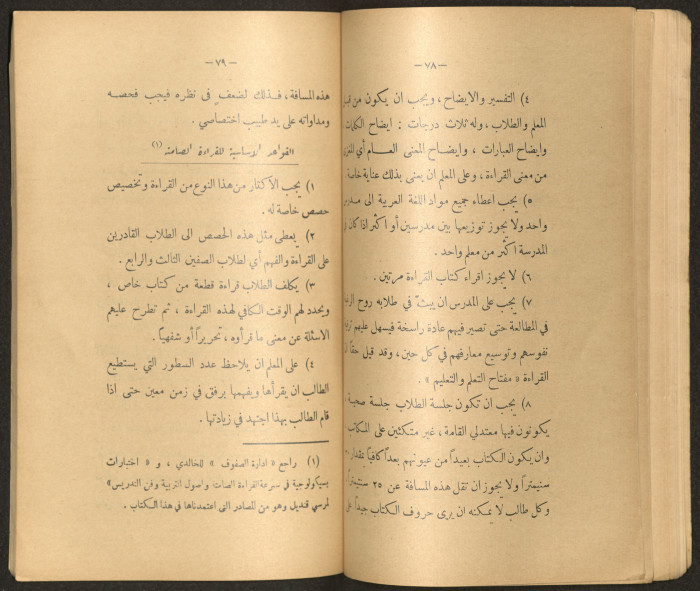 — ٧٨ —
٤) التفسير والايضاح ، ويجب ان يكون من
المعلم والطلاب ، وله ثلاث درجات : ايضاح الكلمات
وايضاح العبارات ، وايضاح المعنى العام أي
من معنى القراءة ، وعلى المعلم ان يعنى بذلك عناية خاصة
٥) يجب اعطاء جميع مواد اللغة العربية الى
واحد ولا يجوز توزيعها بين مدرسين أو أكثر اذا كان
المدرسة أكثر من معلم واحد .
٦) لا يجوز اقراء كتاب القراءة مرتين .
٧) يجب على المدرس ان يبث في طلابه روح
في المطالعة حتى تصير فيهم عادة راسخة فيسهل عليهم
نفوسهم وتوسيع معارفهم في كل حين ، وقد قيل حقاً
القراءة « مفتاح التعلم والتعليم » .
٨) يجب ان تكون جلسة الطلاب جلسة صحية
يكونون فيها معتدلي القامة ، غير متكئين على
وان يكون الكتاب بعيداً من عيونهم بعداً كافياً
سنيمتراً ولا يجوز ان تقل هذه المسافة عن ٢٥
وكل طالب لا يمكنه ان يرى حروف الكتاب جيداً
— ٧٩ —
هذه المسافة ، فذلك لضعف في نظره فيجب فحصه
ومداواته على يد طبيب اختصاصي .
القواعد الاساسية للقراءة الصامتة (١)
١) يجب الاكثار من هذا النوع من القراءة وتخصيص
حصص خاصة له .
٢) يعطى مثل هذه الحصص الى الطلاب القادرين
على القراءة والفهم أي لطلاب الصفين الثالث والرابع .
٣) يكلف الطلاب قراءة قطعة من كتاب خاص ،
ويحدد لهم الوقت الكافي لهذه القراءة ، ثم تطرح عليهم
الاسئلة عن معنى ما قرأوه ، تحريراً أو شفهياً .
٤) على المعلم ان يلاحظ عدد السطور التي يستطيع
الطالب ان يقرأها ويفهمها برفق في زمن معين حتى اذا
قام الطالب بهذا اجتهد في زيادتها .
(١) راجع « ادارة الصفوف » للخالدي ، و « اختبارات
بسيكولوجية في سرعة القراءة الصامتة واصول التربية وفن التدريس »
لمرسي قنديل وهو من المصادر التي اعتمدناها في هذا الكتاب .